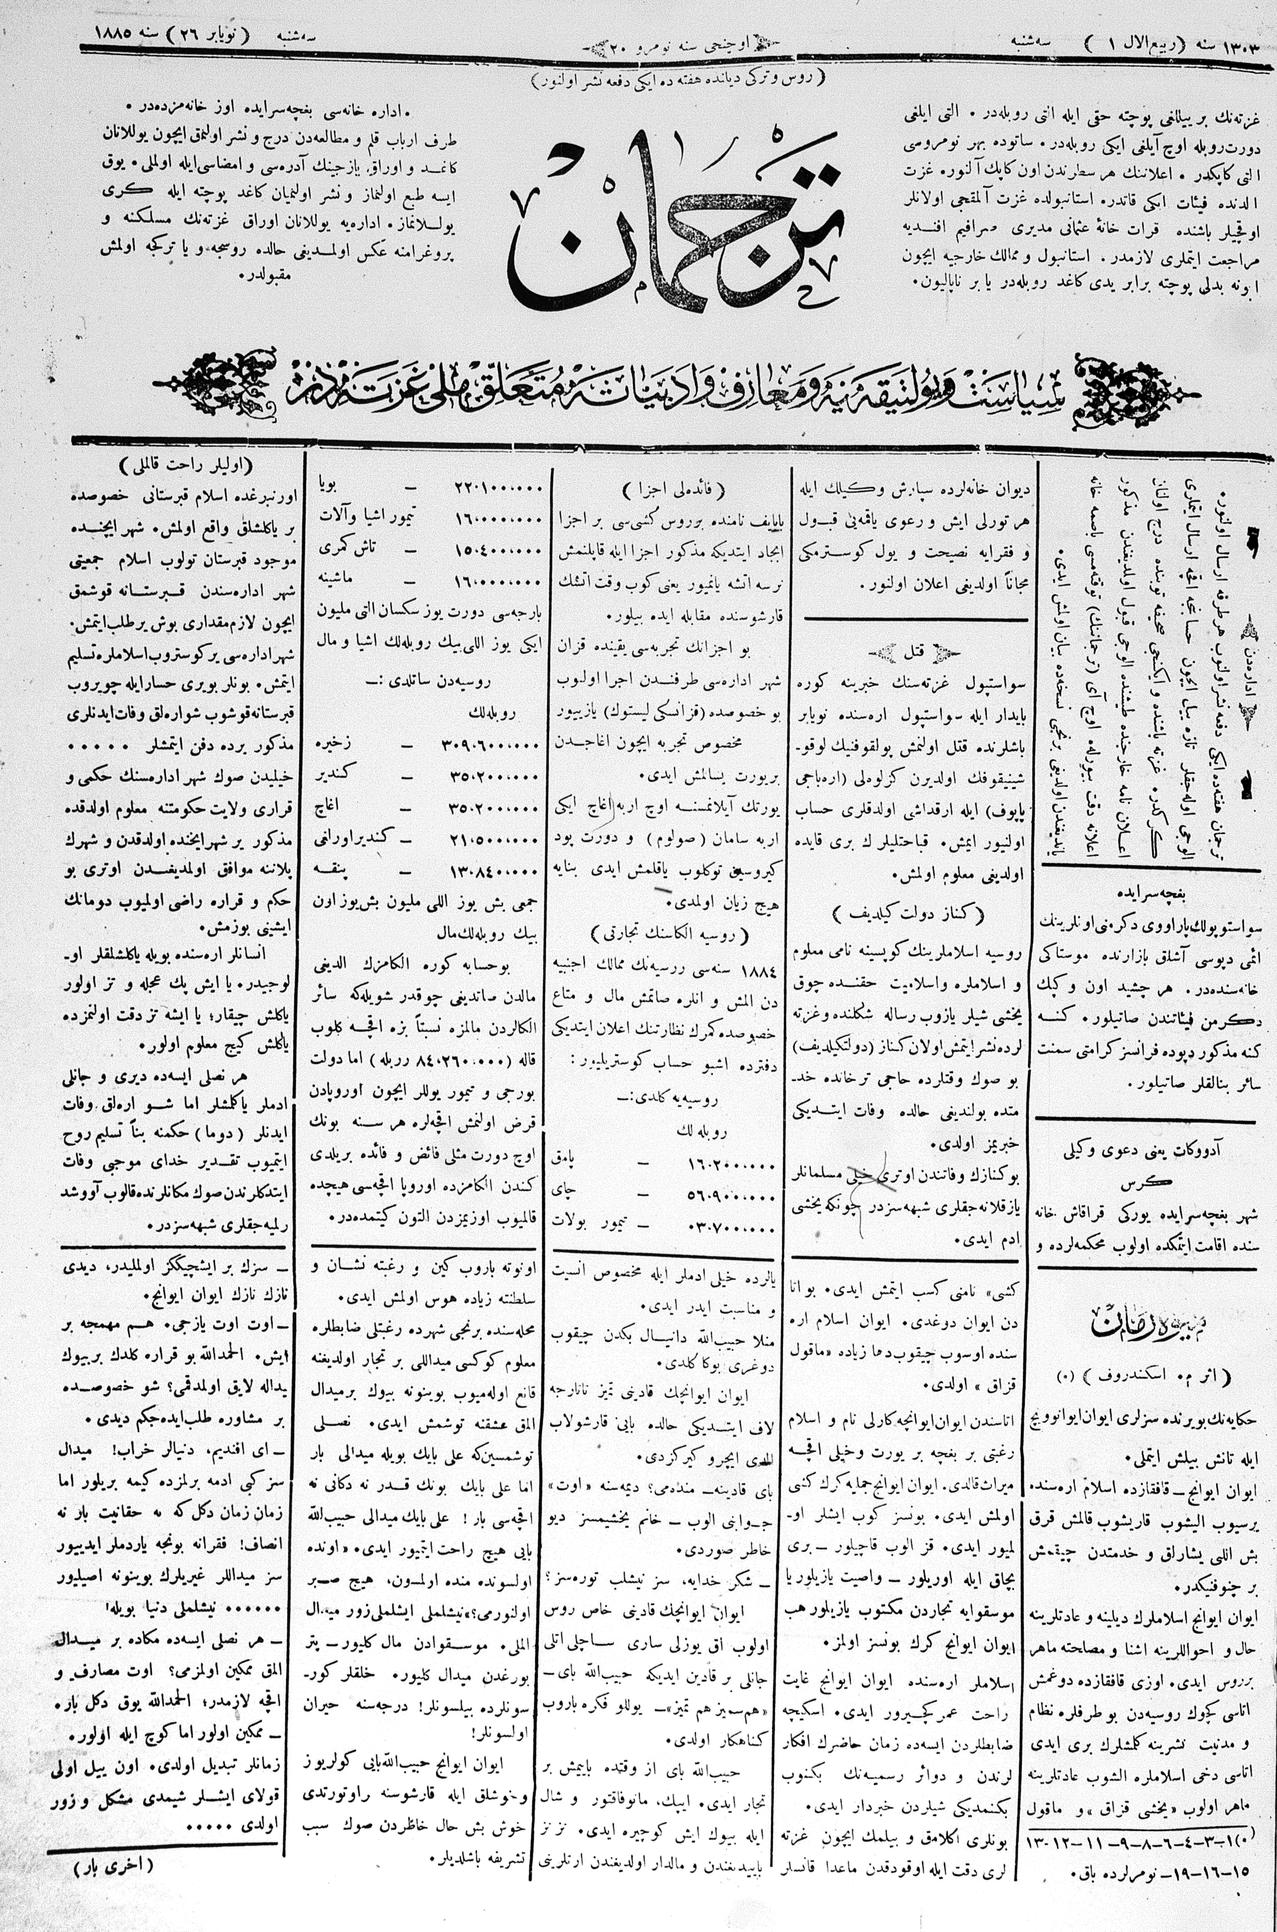 ١٣٠٣ سنه (ربیع‌الاول ١) سه‌شنبه
اوچنجی سنه نومرو ٢٠
سه‌شنبه (نویابر ٢٦) سنه ١٨٨٥
(روس و ترکی دیلنده هفته ده ایکی دفعه نشر اولنور)
غزته‌نك بر ییللغی پوچته حقی ایله التی روبله‌در. التی ایلغی
دورت روبله اوچ آیلغی ایکی روبله‌در. ساتوده بهر نومروسی
التی کاپکدر. اعلاننك هر سطرندن اون کاپك آلنور. غزت
الدنده فیئات ایکی قاتدر. استانبولده غزت آلمقجی اولانلر
اوقچیلر باشنده قرات خانۀ عثمانی مدیری صرافیم افندیه
مراجعت ایتملری لازمدر. استانبول و ممالك خارجیه ایچون
ابونه بدلی پوچته برابر یدی کاغد روبله‌در یا بر ناپالیون.
ترجمان
. اداره خانه‌سی بغچه‌سرایده اوز خانه‌مزده‌در.
طرف ارباب قلم و مطالعه‌دن درج و نشر اولنمق ایچون یوللانان
کاغد و اوراق یازجینك آدره‌سی و امضاسی ایله اولملی. یوق
ایسه طبع اولنماز و نشر اولنمیان کاغد پوچته ایله کری
یوللانماز. اداره‌یه یوللانان اوراق غزته‌نك مسلکنه و
پروغرامنه عکس اولمدیغی حالده روسجه و یا ترکجه اولمش
مقبولدر.
سیاست و پولتیقه‌یه و معارف و ادبیاته متعلق ملی غزته‌در
اداره‌دن
ترجمان هفته‌ده ایکی دفعه نشر اولنوب هر طرفه ارسال اولنور.
الوجی اوله‌جقلر تازه ییل ایچون حسابجه اقچه ارسال ایتملری
کرکدر. غزته باشنده و ایکنجی صحیفه توبنده درج اولنان
اعلان نامه خارجنده طیشنده الوجی قبول اولندیغندن مذکور
اعلانه دقت بیورله. اوچ آی (ترجماننك) توقته‌مسی باصمه خانه
یاندیغندن اولدیغی برنجی نسخه‌ده بیان اولنمش ایدی.
بغچه‌سرایده
سواستوپولك پاراووی دکرمنی اونلرینك
ائمی دپوسی آشلق بازارنده موستاکی
خانه‌سنده‌در. هر چشید اون و کپك
دکرمن فیئاتندن صاتیلور. کنه
کنه مذکور دپوده فرانسز کرامتی سمنت
سائر بنالقلر صاتیلور.
آدووکات یعنی دعوی وکیلی
کرس
شهر بغچه‌سرایده یورکی قراقاش خانه
سنده اقامت ایتمکده اولوب محکمه‌لرده و
دیوان خانه‌لرده سپارش وکیلك ایله
هر تورلی ایش و رعوی یاقمه‌نی قبول
و فقرایه نصیحت و یول کوسترمکی
مجاناً اولدیغی اعلان اولنور.
قتل
سواستپول غزته‌سنك خبرینه کوره
بایدار ایله سواستپول اره‌سنده نویابر
باشلرنده قتل اولنمش پولقوفنیك لوقو-
شینیقوفك اولدیرن کزلوه‌لی (اره‌باجی
پاپوف) ایله ارقداشی اولدقلری حساب
اولنیور ایمش. قباحتلیلرك بری قایده
اولدیغی معلوم اولمش.
(کناز دولت کیلدیف)
روسیه اسلاملرینك کوپسینه نامی معلوم
و اسلاملره و اسلامیت حقنده چوق
یخشی شیلر یازوب رساله شکلنده و غزته
لرده نشر ایتمش اولان کناز (دولتکیلدیف)
بو صوك وقتلرده حاجی ترخانده خد-
متده بولندیغی حالده وفات ایتدیکی
خبریمز اولدی.
بو کنازك وفاتندن اوتری خیلی مسلمانلر
یازقلانه‌جقلری شبهه‌سزدر چونکه یخشی
ادم ایدی.
(فائده‌لی اجزا)
بابایف نامنده بر روس کشی‌سی بر اجزا
ایجاد ایتدیکه مذکور اجزا ایله قاپلنمش
نرسه اتشه یانمیور یعنی کوب وقت اتشك
قارشوسنده مقابله ایده بیلور.
بو اجزانك تجربه‌سی یقینده قزان
شهر اداره‌سی طرفندن اجرا اولوب
بو خصوصده (قزانسکی لیستوك) یازییور
مخصوص تجربه ایچون اغاجدن
بریورت یسالمش ایدی.
یورتك آیلانمسنه اوچ اربه اغاج ایکی
اربه سامان (صولوم) و دورت پود
کیروسین توکلوب یاقلمش ایدی بنایه
هیچ زیان اولمدی.
(روسیه الکاسنك تجارتی)
١٨٨٤ سنه‌سی روسیه‌نك ممالك اجنبیه
دن المش و انلره صاتمش مال و متاع
خصوصده کمرك نظارتنك اعلان ایتدیکی
دفترده اشبو حساب کوستریلیور:
روسیه‌یه کلدی:ـ
روبله لك
١٦٠٢٠٠٠٠٠٠ – پامق
٥٦٠٩٠٠٠٠٠ – چای
٠٣٠٧٠٠٠٠٠ – تیمور بولات
٢٢٠١٠٠٠٠٠٠ – بویا
١٦٠٠٠٠٠٠٠ – تیمور اشیا و آلات
١٥٠٤٠٠٠٠٠ – تاش کمری
١٦٠٠٠٠٠٠٠ – ماشینه
بارجه‌سی دورت یوز سکسان التی ملیون
ایکی یوز اللی بیك روبله‌لك اشیا و مال
روسیه‌دن ساتلدی:ـ
روبله‌لك
٣٠٩٠٦٠٠٠٠٠ – زخیره
٣٥٠٢٠٠٠٠٠ – کندیر
٣٥٠٢٠٠٠٠٠ – اغاچ
٢١٠٥٠٠٠٠٠ – کندیر اوراقی
١٣٠٨٤٠٠٠٠٠ – پنقه
جمعی بش یوز اللی ملیون بش یوز اون
بیك روبله‌لك مال
بو حسابه کوره الکامزك الدیغی
مالدن صاتدیغی چوقدر شویله‌که سائر
الکالردن مالمزه نسبتاً بزه اقچه کلوب
قاله (٨٤٠٢٦٠٠٠٠ روبله) اما دولت
بورجی و تیمور یوللر ایچون اوروپادن
قرض اولنمش اقچه‌لره هر سنه بونك
اوچ دورت مثلی فائض و فائده بریلدی
کندن الکامزده اوروپا اقچه‌سی هیچده
قالمیوب اوزیمزدن التون کیتمده‌در.
(اولیلر راحت قالملی)
اورنبرغده اسلام قبرستانی خصوصده
بر یاکلشلق واقع اولمش. شهر ایچنده
موجود قبرستان تولوب اسلام جمعیتی
شهر اداره‌سندن قبرستانه قوشمق
ایچون لازم مقداری بوش یر طلب ایتمش.
شهر اداره‌سی یر کوستروب اسلاملره تسلیم
ایتمش. بونلر بویری حسار ایله چویروب
قبرستانه قوشوب شواره‌لق وفات ایدنلری
مذکور یرده دفن ایتمشلر .....
خیلیدن صوك شهر اداره‌سنك حکمی و
قراری ولایت حکومتنه معلوم اولدقده
مذکور یر شهر ایچنده اولدقدن و شهرك
پلاننه موافق اولمدیغندن اوتری بو
حکم و قراره راضی اولمیوب دومانك
ایشینی بوزمش.
انسانلر اره‌سنده بویله یاکلشلقلر او-
لوجیدر. یا ایش پك عجله و تز اولور
یاکلش چیقار؛ یا ایشه تز دقت اولنمزده
یاکلش کیج معلوم اولور.
هر نصلی ایسه‌ده دیری و جانلی
ادملر یاکلمشلر اما شو اره‌لق وفات
ایدنلر (دوما) حکمنه بنأ تسلیم روح
ایتمیوب تقدیر خدای موجبی وفات
ایتدکلرندن صوك مکانلرنده قالوب آووشد
رلمیه‌جقلری شبهه‌سزدر.
میوه رمضان
(اثر م. اسکندروف) (٠)
حکایه‌نك بویرنده سزلری ایوان ایوانوویج
ایله تانش بیلش ایتملی.
ایوان ایوانج – قافقازده اسلام اره‌سنده
یرسیوب الیشوب قاریشوب قالمش قرق
بش اللی یشارلق و خدمتدن چیقمش
بر چنوفنیکدر.
ایوان ایوانج اسلاملرك دیلینه و عادتلرینه
حال و احواللرینه اشنا و مصلحته ماهر
بر روس ایدی. اوزی قافقازده دوغمش
اتاسی کچوك روسیه‌دن بو طرفلره نظام
و مدنیت نشرینه کلمشلرك بری ایدی
اتاسی دخی اسلاملره الشوب عادتلرینه
ماهر اولوب «یخشی قزاق» و ماقول
(٠) ١-٣-٤-٦-٨-٩-١١-١٢-١٣
١٥-١٦-١٩- نومرلرده باق.
کشی» نامنی کسب ایتمش ایدی. بو اتا
دن ایوان دوغدی. ایوان اسلام اره
سنده اوسوب چیقوب دها زیاده «ماقول
قزاق» اولدی.
اتاسندن ایوان ایوانچه کارلی نام و اسلام
رغبتی بر بغچه بر یورت و خیلی اقچه
میراث قالدی. ایوان ایوانج حمایه کرك کشی
اولمش ایدی. بونسز کوب ایشلر او-
لمیور ایدی. قز الوب قاچیلور – بری
بچاق ایله اوریلور – واصیت یازیلور یا
موسقوایه تجاردن مکتوب یازیلور هب
ایوان ایوانج کرك بونسز اولمز.
اسلاملر اره‌سنده ایوان ایوانج غایت
راحت عمر کچیرور ایدی. اسکیچه
ضابطلردن ایسه‌ده زمان حاضرك افکار
لرندن و دوائر رسمیه‌نك بکنوب
بکنمدیکی شیلردن خبردار ایدی.
بونلری اکلامق و بیلمك ایچون غزته
لری دقت ایله اوقودقدن ماعدا قانسلر
یالرده خیلی ادملر ایله مخصوص انسیت
و مناسبت ایدر ایدی.
منلا حبیب‌الله دانیال بکدن چیقوب
دوغری بوکا کلدی.
ایوان ایوانچك قادینی تمیز تاتارجه
لاف ایتدیکی حالده بایی قارشولاب
الدی ایچرو کیرکزدی.
بای قادینه – منده‌می؟ دیمه‌سنه «اوت»
جوابنی الوب – خانم یخشیمسز دیو
خاطر صوردی.
– شکر خدایه، سز نیشلب توره‌سز؟
ایوان ایوانچك قادینی خاص روس
اولوب اق یوزلی ساری ساچلی اتلی
جانلی بر قادین ایدیکه حبیب‌الله بای –
«هم سمیز هم تمیز» – یوللو فکره باروب
کناهکار اولدی.
حبیب‌الله بای از وقتده بایمش بر
تجار ایدی. ایپك، مانوفاقتور و شال
ایله بیوك ایش کوچیره ایدی. تز تز
باییدیغندن و مالدار اولدیغندن ارتلرینی
اونوته باروب کین و رغبته نشان و
سلطنته زیاده هوس اولمش ایدی.
محله‌سنده برنجی شهرده رغبتلی ضابطلره
معلوم کوکسی میداللی بر تجار اولدیغنه
قانع اوله‌میوب بوینونه بیوك بر میدال
المق عشقنه توشمش ایدی. نصلی
توشمسین‌که علی بایك بویله میدالی بار
اما علی بایك بونك قدر نه دکانی نه
اقچه‌سی بار! علی بایك میدالی حبیب‌الله
بایی هیچ راحت ایتمیور ایدی. «اونده
اولسونده منده اولمسون، هیچ صبر
اولنورمی؟» نیشلملی ایشلملی زور میدال
الملی. موسقوادن مال کلیور – پتر
بورغدن میدال کلیور. خلقلر کور-
سونلرده بیلسونلر! درجه‌سنه حیران
اولسونلر!
ایوان ایوانج حبیب‌الله بایی کولریوز
و خوشلق ایله قارشوسنه راوتورتدی
خوش بش حال خاطردن صوك سبب
تشریفه باشلدیلر.
– سزك بر ایشچیککز اولملیدر، دیدی
نازك نازك ایوان ایوانج.
– اوت اوت یازجی. هم مهمجه بر
ایش. الحمدالله بو قراره کلدك بر بیوك
یداله لایق اولمدقمی؟ شو خصوصده
بر مشاوره طلب ایده‌جکم دیدی.
– ای افندیم، دنیالر خراب! میدال
سز کبی ادمه برلمزده کیمه بریلور اما
زمان زمان دکل که نه حقانیت بار نه
انصاف! فقرانه بونجه یاردملر ایدییور
سز میداللر غیریلرك بوینونه اصیلیور
...... نیشلملی دنیا بویله!
– هر نصلی ایسه‌ده مکاده بر میدال
المق ممکین اولمزمی؟ اوت مصارف و
اقچه لازمدر؛ الحمدالله یوق دکل بار.
– ممکین اولور اما کوچ ایله اولور.
زمانلر تبدیل اولدی. اون ییل اولی
قولای ایشلر شیمدی مشکل و زور
اولدی .....
(اخری بار)